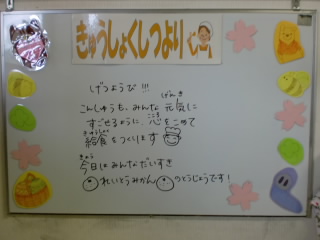 きゅうしょくしつより
げつようび!!!
こんしゅうも、みんな元気に
すごせるように、心をこめて
給食をつくります
今日はみんなだいすき
れいとうみかんのとうじょうです!